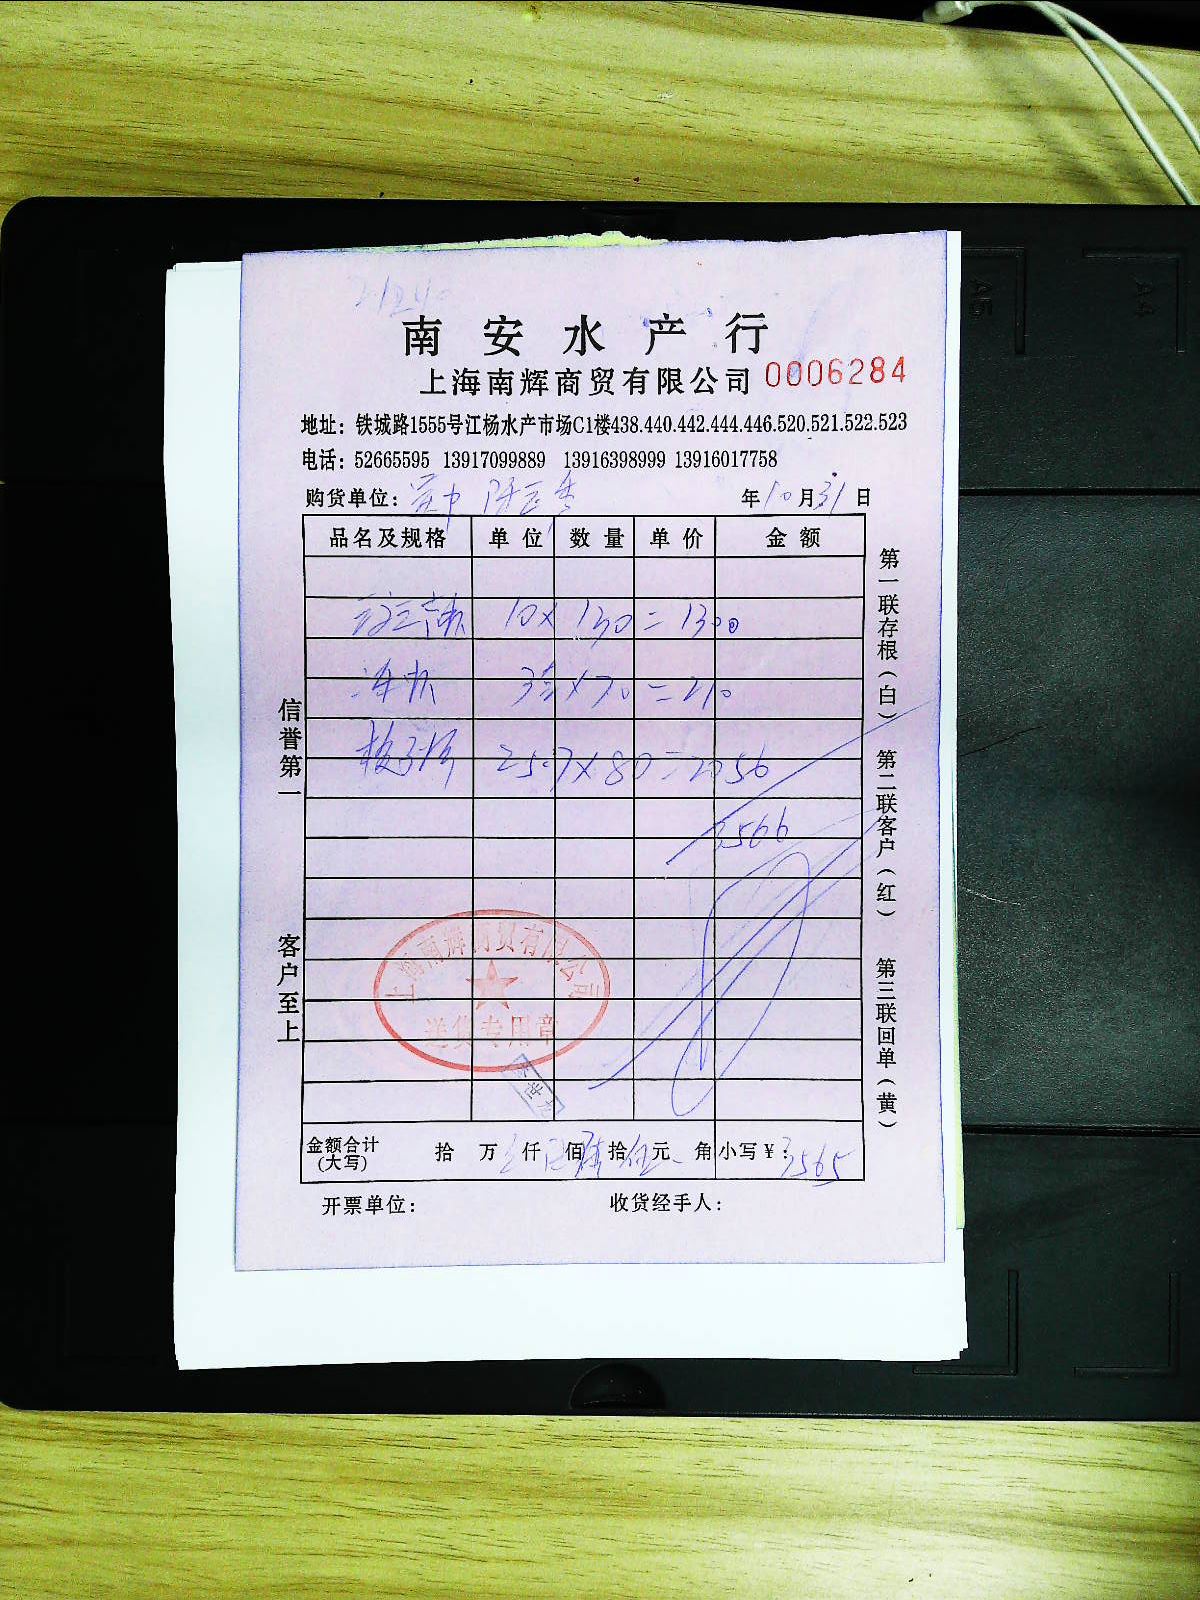 南安水产行
上海南辉商贸有限公司 0006284
地址：铁城路1555号江杨水产市场C1楼438.440.442.444.446.520.521.522.523
电话：52665595 13917099889 13916398999 13916017758
购货单位： 年10月31日
品名及规格 单位 数量 单价 金额
10×130=1300
3×70=210
25.7×80=2056
3566
上海南辉商贸有限公司
送货专用章
金额合计(大写) 拾 万 仟 佰 拾 元 角 小写￥：3565
开票单位： 收货经手人：
信誉第一
客户至上
第一联存根（白）
第二联客户（红）
第三联回单（黄）
A5
A4